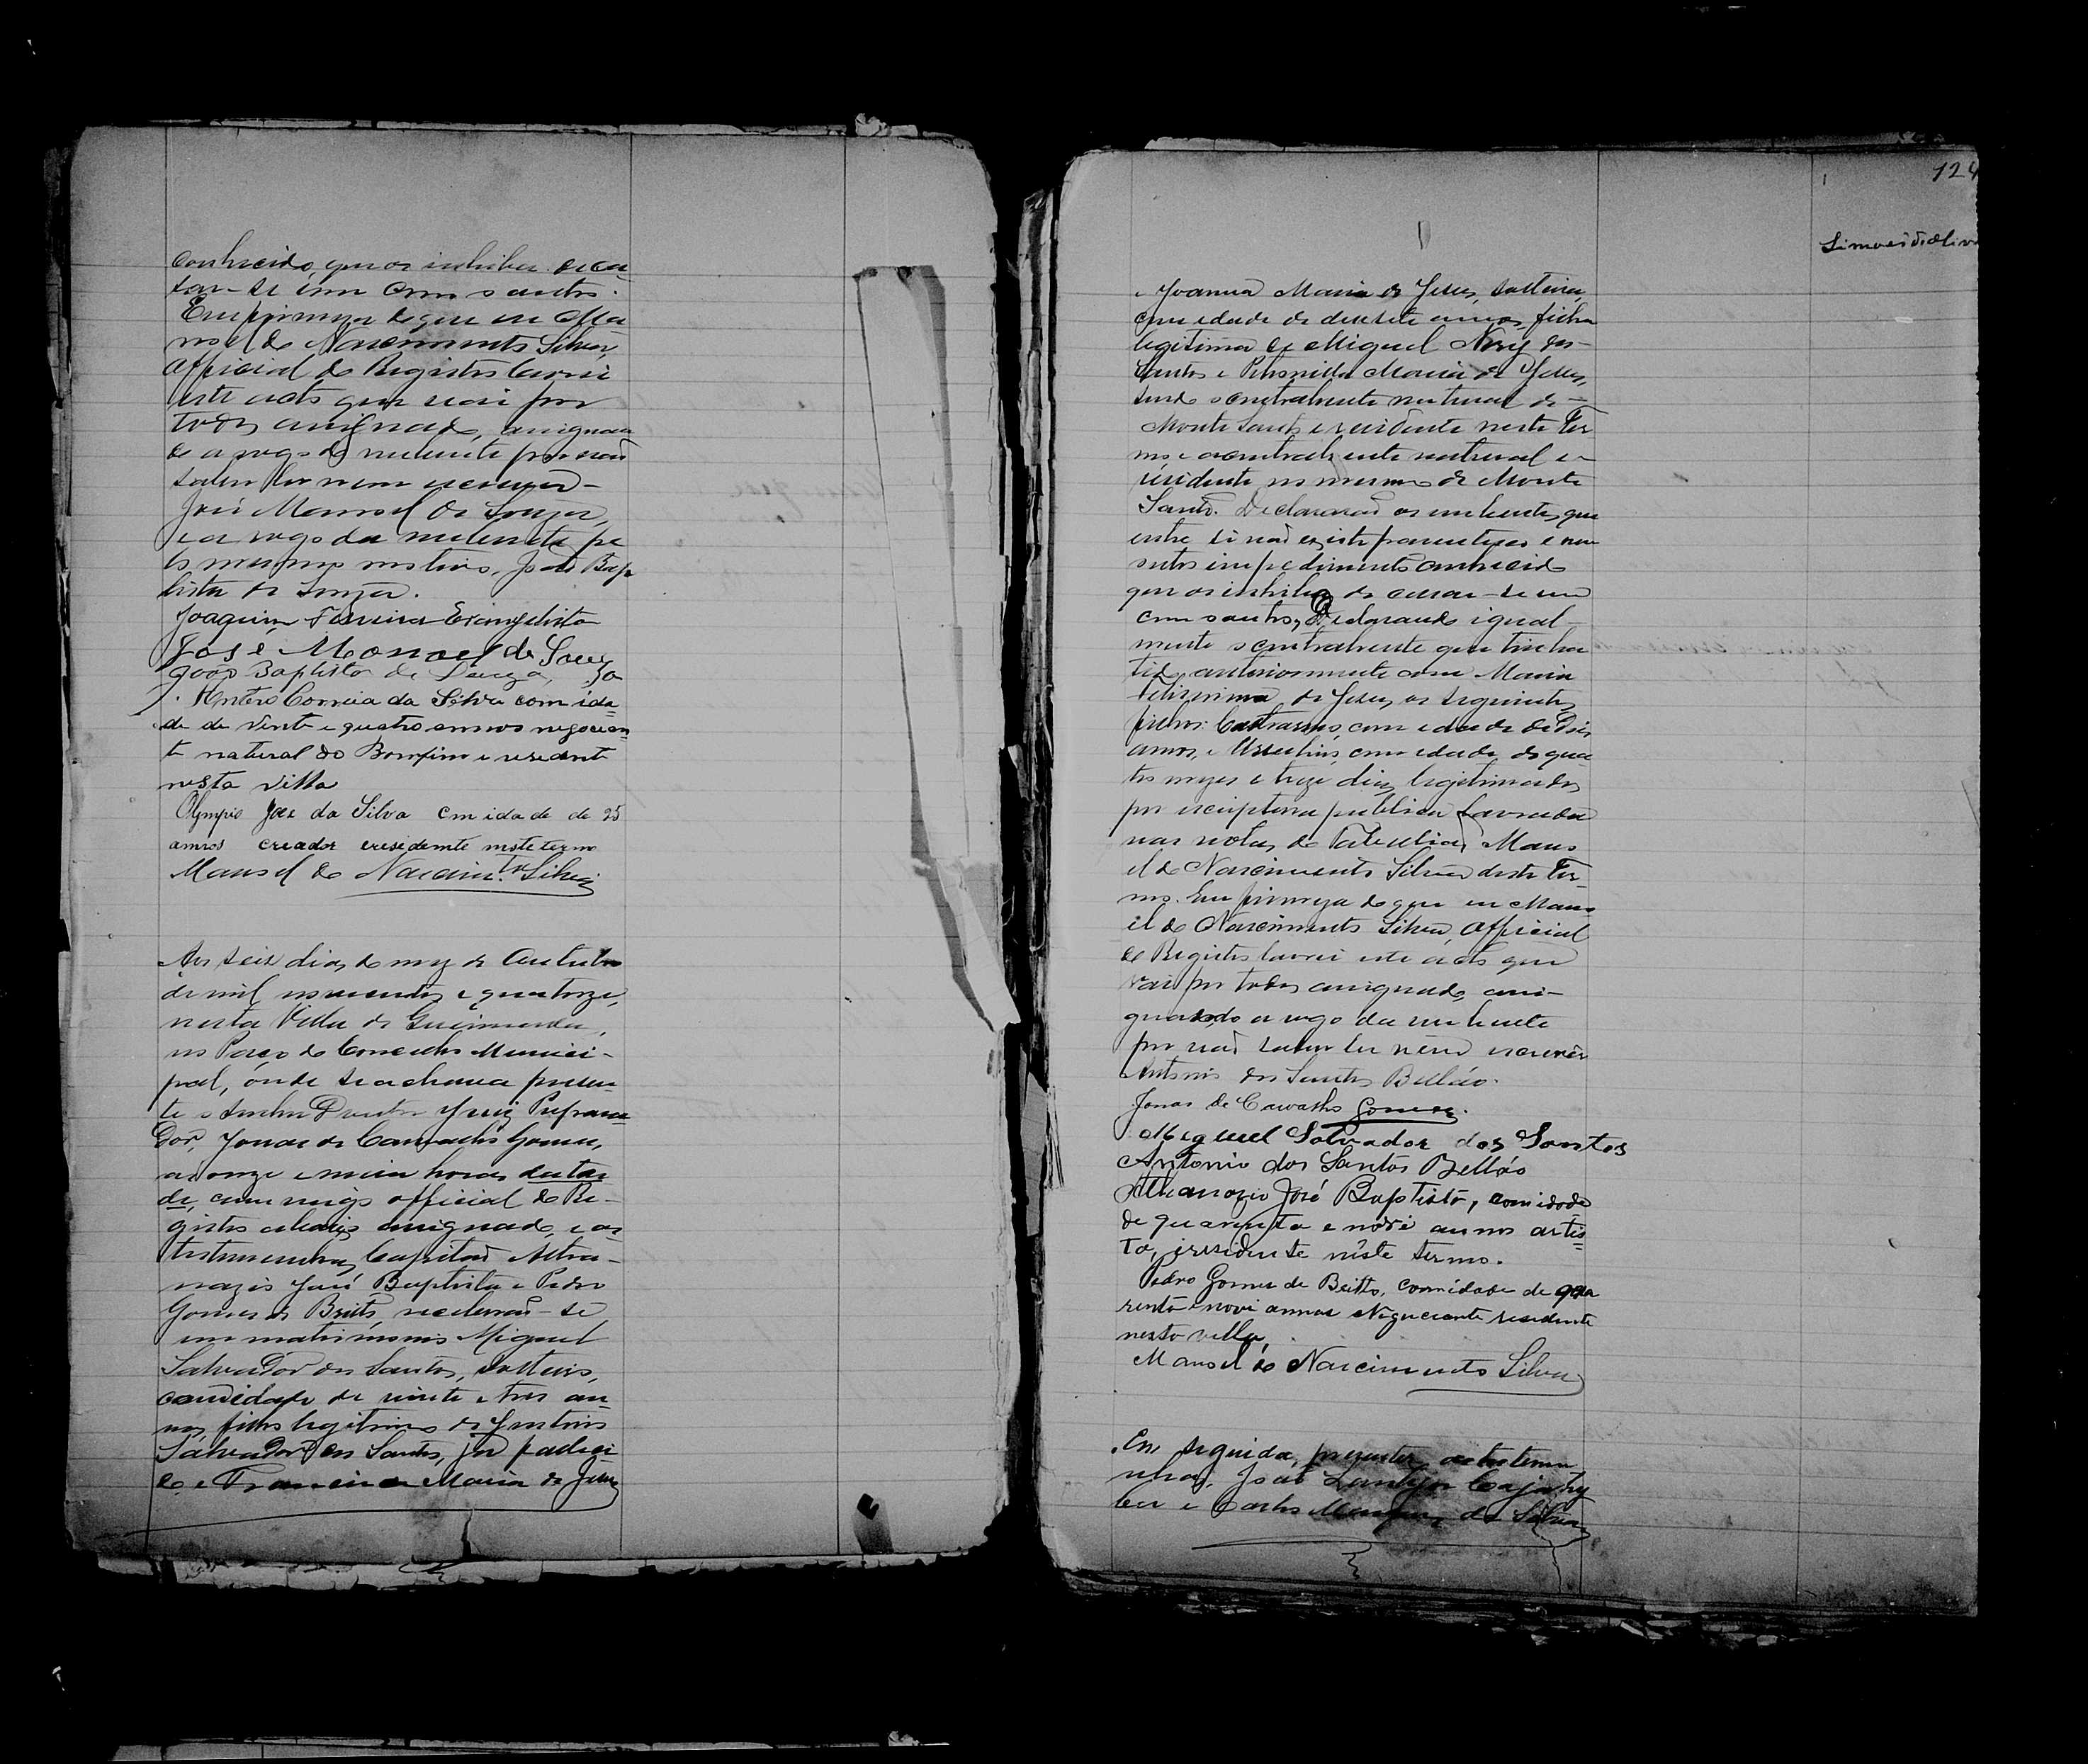 conhecido, que os inhiba de ca
sar-se um com o outro.
Em firmeza do que eu Ma
noel do Nascimento Silva,
Official do Registro lavrei
este acto que vai por
todos assignado, assignan
do a rogo do nubente por não
saber ler nem escrever
José Manoel de Souza,
e a rogo da nubente pe
lo mesmo motivo, João Bap
tista de Souza.
Joaquim Ferreira Evangelista
José Manoel de Souza
João Baptista de Souza
Antero Correia da Silva com ida
de de vinte e quatro annos negocian
te natural do Bomfim e residente
nesta villa
Olympio José da Silva com idade de 25
annos creador e residente neste termo
Manoel do Nascim.to Silva
Aos seis dias do mez de Outubro
de mil novecentos e quatorze,
nesta Villa de Queimadas,
no Paço do Conselho Munici-
pal, onde se achava presen
te o Senhor Doutor Juiz Prepara
dor, Jonas de Carvalho Gomes,
as onze e meia horas da tar
de, commigo official do Re-
gistro abaixo assignado, e as
testemunhas Capitão Atha-
nazio José Baptista e Pedro
Gomes de Britto, receberão-se
em matrimonio Miguel
Salvador dos Santos, solteiro,
com idade de vinte e tres an
nos, filho legitimo de Justino
Salvador dos Santos, já falleci
do e Francisca Maria de Jesus
124
Simões d'Oliv
e Joanna Maria de Jesus, solteira,
com edade de desesete annos, filha
legitima de Miguel Nery dos
Santos e Petronilla Maria de Jesus,
sendo o contrahente natural de
Monte Santo e residente neste Ter
mo, e a contrahente natural e
residente no mesmo de Monte
Santo. Declararão os nubentes, que
entre si não existe parentesco e nem
outro impedimento conhecido
que os inhiba de casar-se um
com o outro, Declarando igual-
mente o contrahente que tinha
tido anteriormente com Maria
de Jesus, os seguintes
filhos: com edade de dois
annos, e com edade de qua
tro mezes e treze dias, legitimados
por escriptura publica lavrada
nas notas do Tabellião Mano
el do Nascimento Silva deste Ter
mo. Em firmeza do que eu Mano
el do Nascimento Silva, Official
do Registro lavrei este acto que
vai por todos assignado, assi-
gnando a rogo da nubente
por não saber ler nem escrever
Antonio dos Santos Bellão.
Jonas de Carvalho Gomes.
Miguel Salvador dos Santos
Antonio dos Santos Bellão
Athanazio José Baptista, com idade
de quarenta e nove annos artis
ta, e residente neste termo.
Pedro Gomes de Britto, com idade de qua
renta e nove annos Negociante residente
nesta villa,
Manoel do Nascimento Silva
Em seguida, presentes as testemu
nhas, João Cajahy
ba e Carlos Marques da Silva